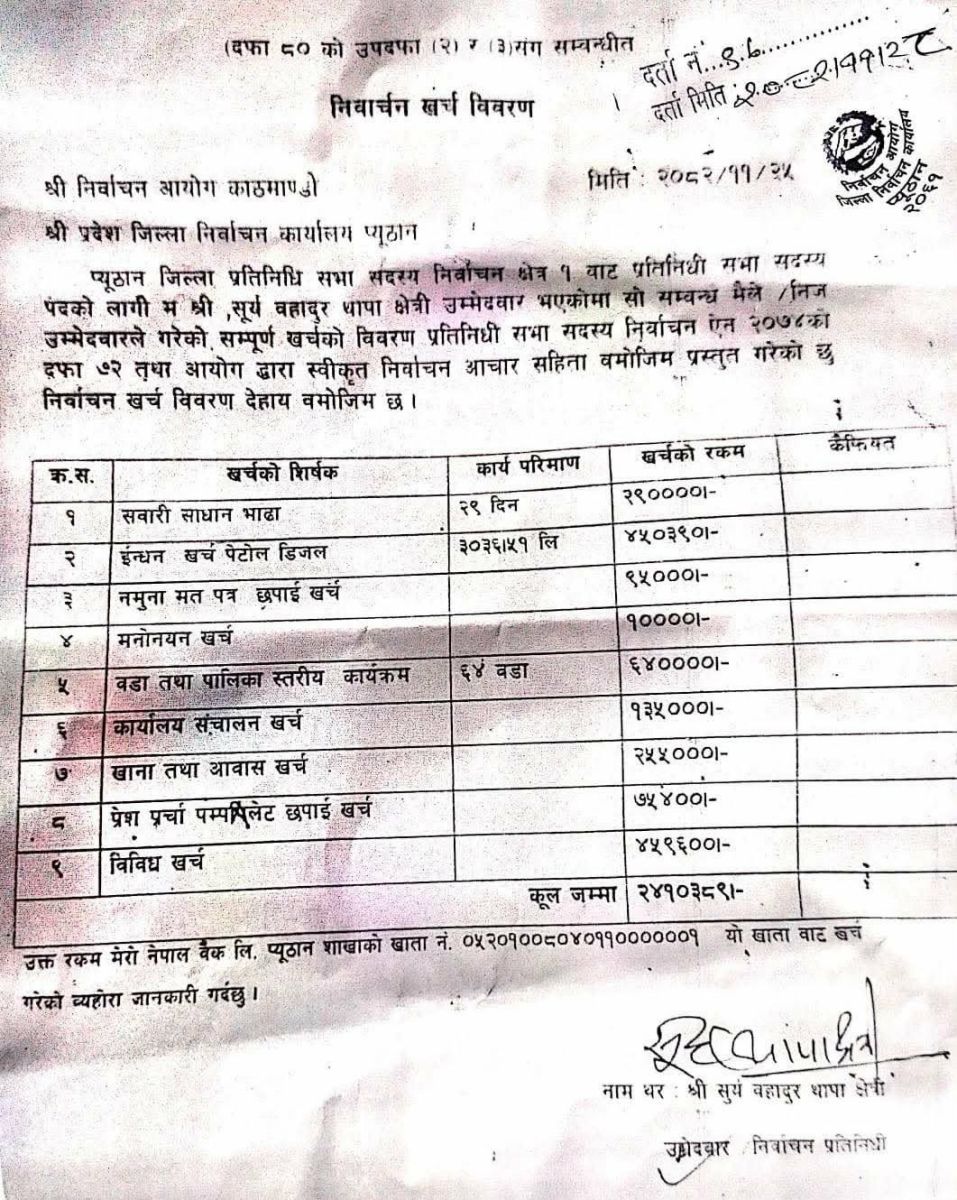 (दफा ८० को उपदफा (२) र (३)संग सम्बन्धीत
दर्ता नं...९६..............
दर्ता मिति:२०८२।११।२८
निवार्चन खर्च विवरण
निर्वाचन आयोग
जिल्ला निर्वाचन कार्यालय
प्यूठान
२०६१
मिति : २०८२/११/२५
श्री निर्वाचन आयोग काठमाण्डो
श्री प्रदेश जिल्ला निर्वाचन कार्यालय प्यूठान
प्यूठान जिल्ला प्रतिनिधि सभा सदस्य निर्वाचन क्षेत्र १ वाट प्रतिनिधी सभा सदस्य
पदको लागी म श्री ,सूर्य वहादुर थापा क्षेत्री उम्मेदवार भएकोमा सो सम्वन्ध मैले /निज
उम्मेदवारले गरेको सम्पूर्ण खर्चको विवरण प्रतिनिधी सभा सदस्य निर्वाचन ऐन २०७४को
दफा ७२ तथा आयोग द्वारा स्वीकृत निर्वाचन आचार सहिता वमोजिम प्रस्तुत गरेको छु
निर्वाचन खर्च विवरण देहाय वमोजिम छ।
क्र.स. खर्चको शिर्षक कार्य परिमाण खर्चको रकम कैफियत
१ सवारी साधान भाढा २९ दिन २९००००।-
२ ईन्धन खर्च पेटोल डिजल ३०३६।५१ लि ४५०३९०।-
३ नमुना मत पत्र छपाई खर्च ९५०००।-
४ मनोनयन खर्च १००००।-
५ वडा तथा पालिका स्तरीय कार्यक्रम ६४ वडा ६४००००।-
६ कार्यालय संचालन खर्च १३५०००।-
७ खाना तथा आवास खर्च २५५०००।-
८ प्रेश प्रर्चा पम्पप्लेट छपाई खर्च ७५४००।-
९ विविध खर्च ४५९६००।-
कूल जम्मा २४१०३८९।-
उक्त रकम मेरो नेपाल वैक लि. प्यूठान शाखाको खाता नं. ०५२०१००८०४०११०००००००१ यो खाता वाट खर्च
गरेको व्यहोरा जानकारी गर्दछु।
नाम थर : श्री सुर्य वहादुर थापा क्षेत्री
उम्मेदवार / निर्वाचन प्रतिनिधी